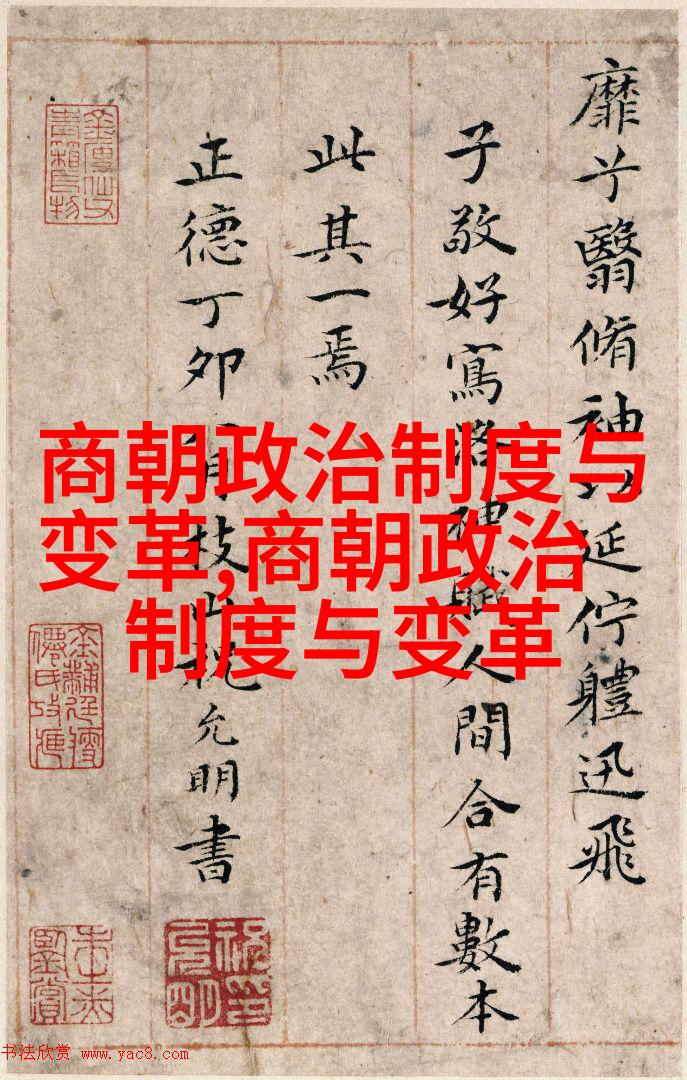 靡兮翳脩袖以延佇體迅飛
子敬好寫洛神賦人間合有數本
此其一焉
正德丁卯月枝山祝允明書
商朝政治制度与
变革,商朝政治
制度与变革
书法欣赏 www.yac8.com